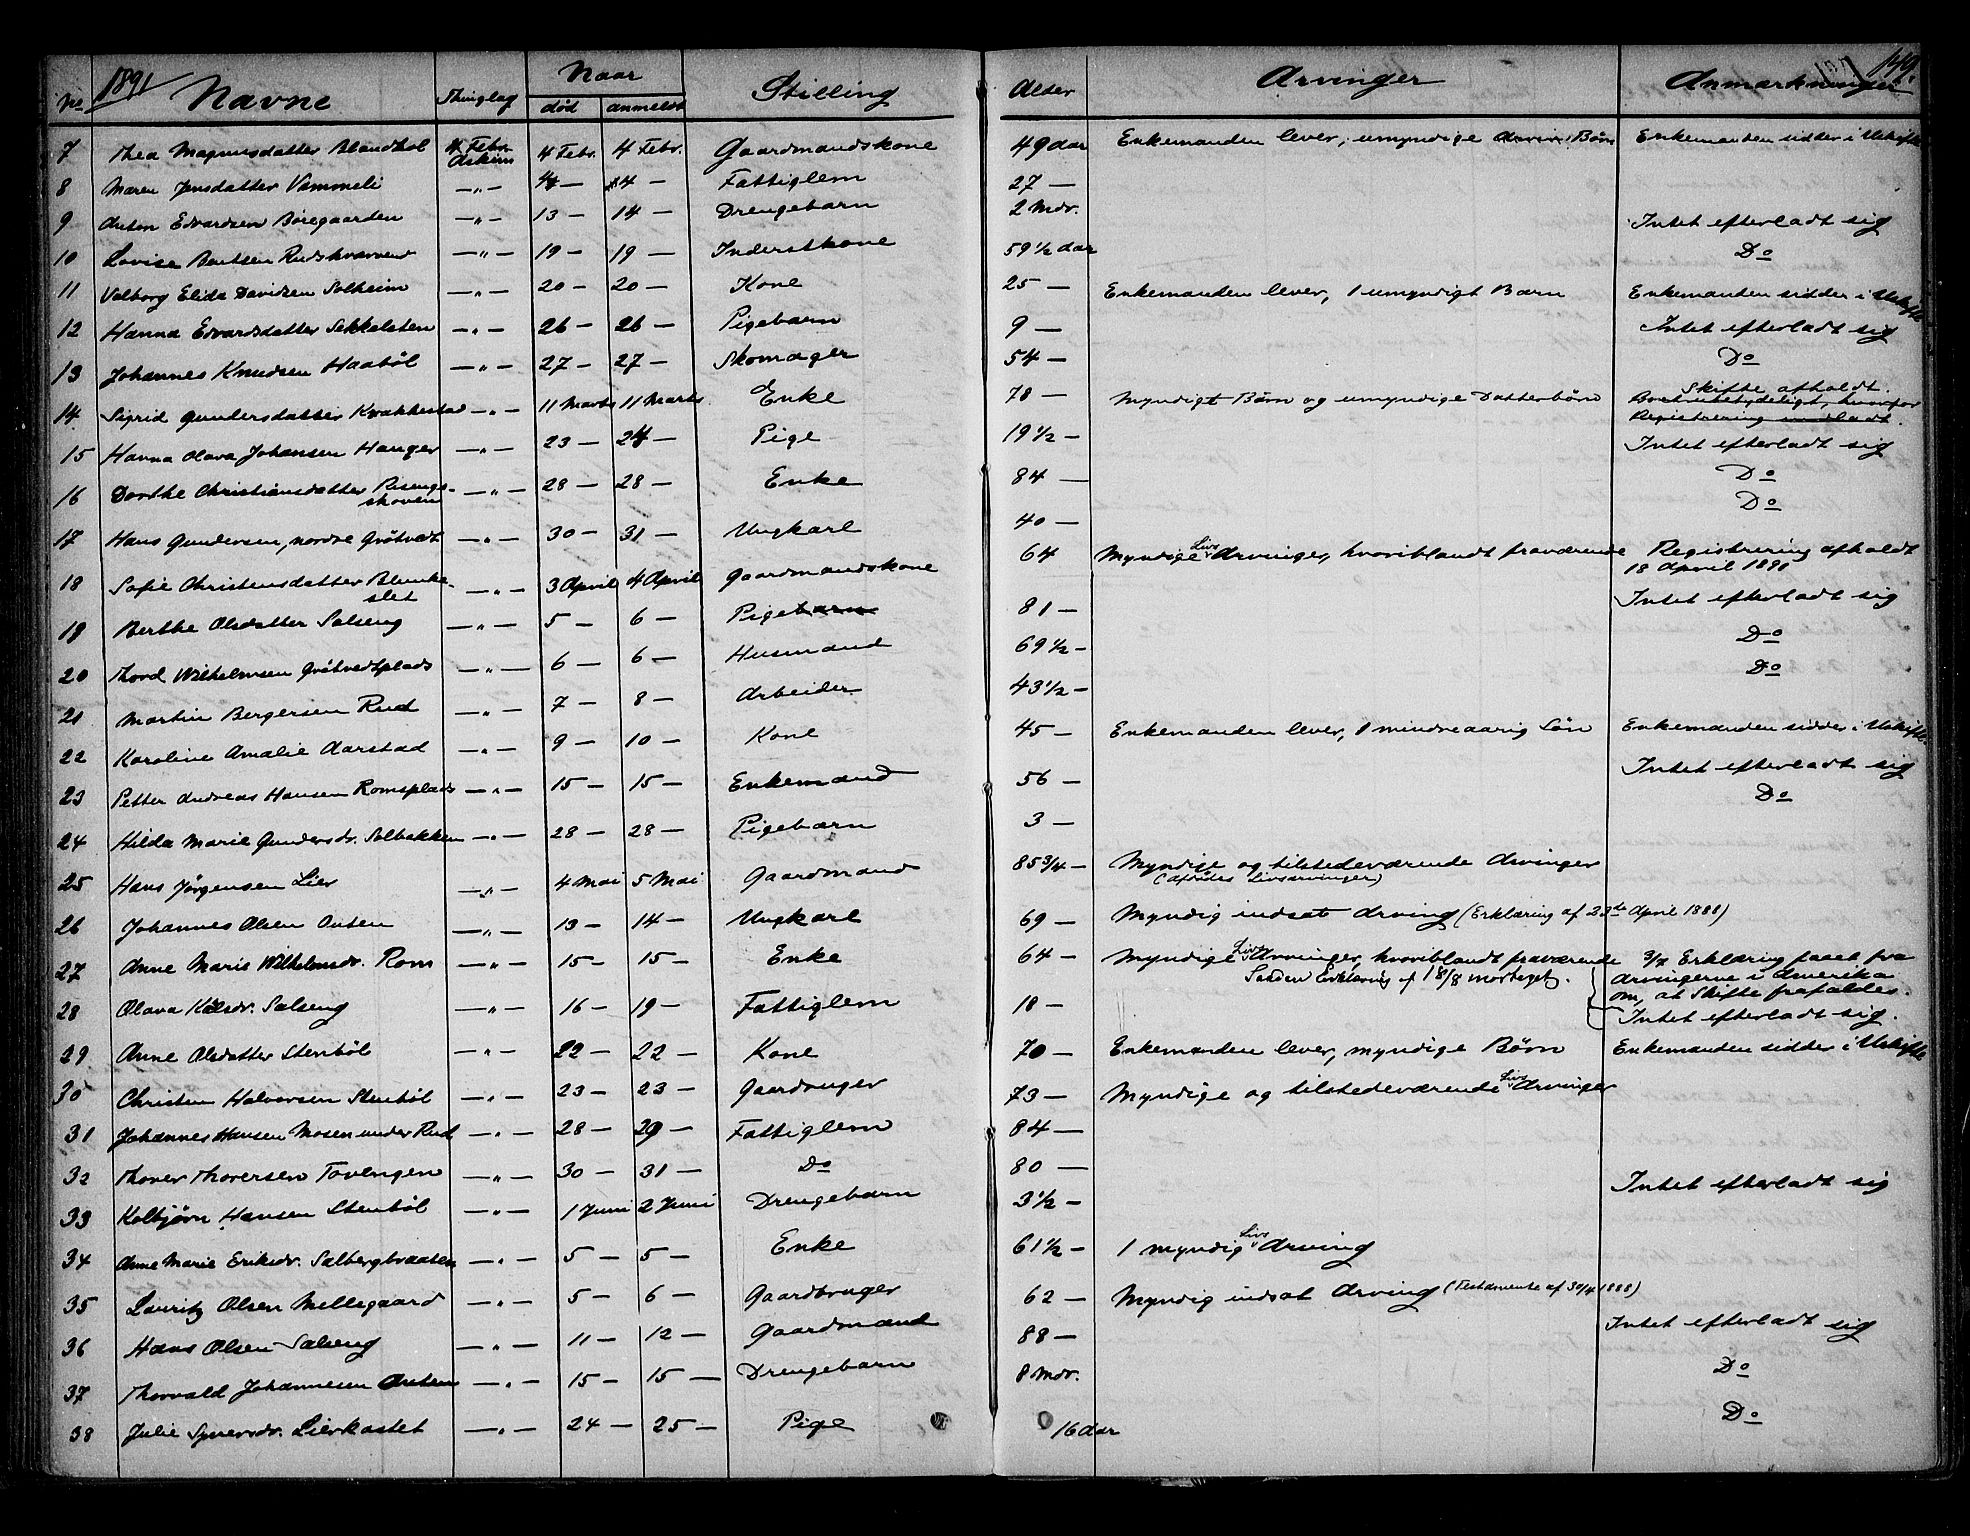 1891 149.
No Navne Thinglag Naar død anmeldt Stilling Alder Arvinger Anmærkninger
7 Thea Magnusdatter Askim 4 Febr. 4 Febr. Gaardmandskone 49 aar Enkemanden lever, umyndige Børn Enkemanden sidder i Uskifte
8 Maren Jensdatter Vammeli —„— 4 — 4 — Fattiglem 27 —
9 Anton Edvardsen Böregaarden —„— 13 — 14 — Drengebarn 2 Mdr. Intet efterladt sig
10 Lovise Berntsen —„— 19 — 19 — Inderstkone 59 1/2 aar Do
11 Valborg Elida Davidsen Solheim —„— 20 — 20 — Kone 25 — Enkemanden lever, 1 umyndigt Barn Enkemanden sidder i Uskifte
12 Hanna Edvardsdatter Sekkelsten —„— 26 — 26 — Pigebarn 9 — Intet efterladt sig
13 Johannes Knudsen Haaböl —„— 27 — 27 — Skomager 54 — Do
14 Sigrid Gundersdatter Kvakkestad —„— 11 Marts 11 Marts Enke 78 — Myndigt Börn og umyndige Datterbörn Skifte afholdt.
Boet ubetydeligt, hvorfor
Registrering undladt.
15 Hanna Olava Johansen Hauger —„— 23 — 24 — Pige 19 1/2 — Intet efterladt sig
16 Dorthe Christiansdatter Risengs-
skoven —„— 28 — 28 — Enke 84 — Do
17 Hans Gundersen, nordre Grötvedt —„— 30 — 31 — Ungkarl 40 — Do
18 Sofie Christensdatter Blanke-
slet —„— 3 April 4 April Gaardmandskone 64 Myndige Livs Arvinger, hvoriblandt fraværende Registrering afholdt
18 April 1891
19 Berthe Olsdatter Solseng —„— 5 — 6 — Pigebarn 81 — Intet efterladt sig
20 Thord Wilhelmsen Grötvedtplads —„— 6 — 6 — Husmand 69 1/2 — Do
21 Martin Bergersen Rud —„— 7 — 8 — Arbeider 43 1/2 — Do
22 Karoline Amalie Aarstad —„— 9 — 10 — Kone 45 — Enkemanden lever, 1 mindreaarig Sön Enkemanden sidder i Uskifte.
23 Petter Andreas Hansen Romsplads —„— 15 — 15 — Enkemand 56 — Intet efterladt sig
24 Hilda Marie Gundersdr. Solbakken —„— 28 — 28 — Pigebarn 3 — Do
25 Hans Jörgensen Lier —„— 4 Mai 5 Mai Gaardmand 85 3/4 — Myndige og tilstedeværende Arvinger
(Afdødes Livsarvinger)
26 Johannes Olsen Onsen —„— 13 — 14 — Ungkarl 69 — Myndig indsat Arving (Erklæring af 23de April 1888)
27 Anne Maris Wilhelmsdr. Rom —„— 15 — 15 — Enke 64 — Myndige Livs Arvinger, hvoriblandt fraværende
Sadden Erklæring af 18/8 mortaget. 3/7 Erklæring faaet fra
Arvingerne i Amerika
om, at Skifte frafaldes.
28 Olava Solseng —„— 16 — 19 — Fattiglem 18 — Intet efterladt sig.
29 Anne Olsdatter Stenböl —„— 22 — 22 — Kone 70 — Enkemanden lever, myndige Börn Enkemanden sidder i Uskifte
30 Christen Halvorsen Stenböl —„— 23 — 23 — Gaardbruger 73 — Myndige og tilstedeværende Livs Arvinger
31 Johannes Hansen Mosen under Rud —„— 28 — 29 — Fattiglem 84 —
32 Thorer Thorersen Tovengen —„— 30 — 31 — Do 80 —
33 Kolbjörn Hansen Stenböl —„— 1 Juni 2 Juni Drengebarn 3 1/2 — Intet efterladt sig
34 Anne Marie Eriksdr. Solbergbraaten —„— 5 — 5 — Enke 61 1/2 — 1 myndig Livs Arving
35 Lauritz Olsen Mellegaard —„— 5 — 6 — Gaardbruger 62 — Myndig indsat Arving (Testamente af 30/4 1888)
36 Hans Olsen Solseng —„— 11 — 12 — Gaardmand 88 — Intet efterladt sig
37 Thorvald Johannesen Onsen —„— 15 — 15 — Drengebarn 8 Mdr. Do
38 Julie Lierkastet —„— 24 — 25 — Pige 16 aar Do